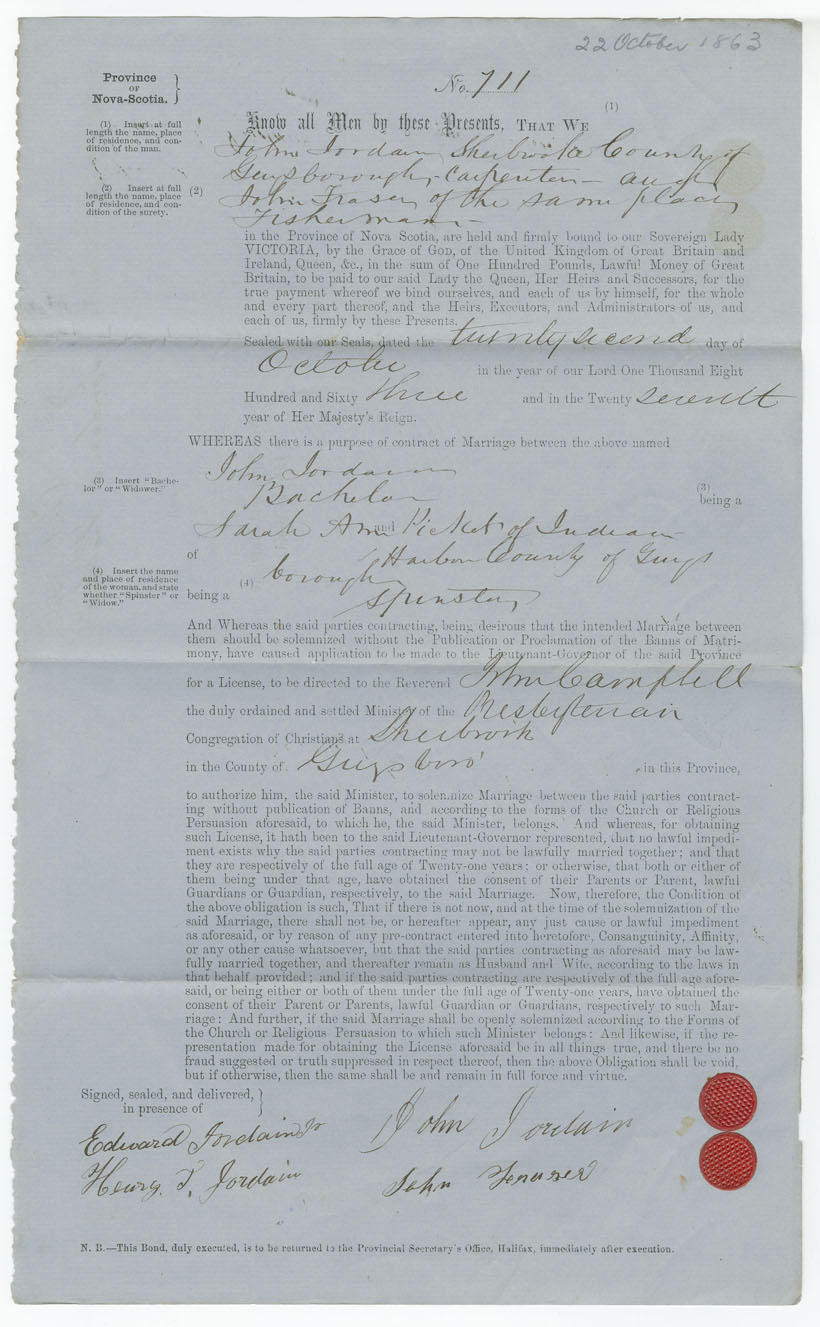 22 October 1863
Province
OF
Nova-Scotia.
No. 711
(1)
Know all Men by these Presents, THAT WE
(1) Insert at full
length the name, place
of residence, and con-
dition of the man.
John Jordain Sherbrooke County of
Guysborough, carpenter and
(2) Insert at full
length the name, place
of residence, and con-
dition of the surety.
(2)
John Fraser of the same place,
Fisherman
in the Province of Nova Scotia, are held and firmly bound to our Sovereign Lady
VICTORIA, by the Grace of GOD, of the United Kingdom of Great Britain and
Ireland, Queen, &c., in the sum of One Hundred Pounds, Lawful Money of Great
Britain, to be paid to our said Lady the Queen, Her Heirs and Successors, for the
true payment whereof we bind ourselves, and each of us by himself, for the whole
and every part thereof, and the Heirs, Executors, and Administrators of us, and
each of us, firmly by these Presents.
Sealed with our Seals, dated the twenty second day of
October in the year of our Lord One Thousand Eight
Hundred and Sixty three and in the Twenty seventh
year of Her Majesty's Reign.
WHEREAS there is a purpose of contract of Marriage between the above named
John Jordain
(3) Insert "Bache-
lor" or "Widower."
(3)
Bachelor being a
Sarah Ann and Picket of Indian
of Harbor County of Guys
(4) Insert the name
and place of residence
of the woman, and state
whether "Spinster" or
"Widow."
(4) borough
being a Spinster
And Whereas the said parties contracting, being desirous that the intended Marriage between
them should be solemnized without the Publication or Proclamation of the Banns of Matri-
mony, have caused application to be made to the Lieutenant-Governor of the said Province
for a License, to be directed to the Reverend John Campbell
the duly ordained and settled Minister of the Presbyterian
Congregation of Christians at Sherbrook
in the County of Guysboro' in this Province,
to authorize him, the said Minister, to solemnize Marriage between the said parties contract-
ing without publication of Banns, and according to the forms of the Church or Religious
Persuasion aforesaid, to which he, the said Minister, belongs. And whereas, for obtaining
such License, it hath been to the said Lieutenant-Governor represented, that no lawful impedi-
ment exists why the said parties contracting may not be lawfully married together; and that
they are respectively of the full age of Twenty-one years; or otherwise, that both or either of
them being under that age, have obtained the consent of their Parents or Parent, lawful
Guardians or Guardian, respectively, to the said Marriage. Now, therefore, the Condition of
the above obligation is such, That if there is not now, and at the time of the solemnization of the
said Marriage, there shall not be, or hereafter appear, any just cause or lawful impediment
as aforesaid, or by reason of any pre-contract entered into heretofore, Consanguinity, Affinity,
or any other cause whatsoever, but that the said parties contracting as aforesaid may be law-
fully married together, and thereafter remain as Husband and Wife, according to the laws in
that behalf provided; and if the said parties contracting are respectively of the full age afore-
said, or being either or both of them under the full age of Twenty-one years, have obtained the
consent of their Parent or Parents, lawful Guardian or Guardians, respectively to such Mar-
riage: And further, if the said Marriage shall be openly solemnized according to the Forms of
the Church or Religious Persuasion to which such Minister belongs: And likewise, if the re-
presentation made for obtaining the License aforesaid be in all things true, and there be no
fraud suggested or truth suppressed in respect thereof, then the above Obligation shall be void,
but if otherwise, then the same shall be and remain in full force and virtue.
Signed, sealed, and delivered,
in presence of
Edward Jordain Jr John Jordain
Henry T. Jordain John
N. B.—This Bond, duly executed, is to be returned to the Provincial Secretary's Office, Halifax, immediately after execution.